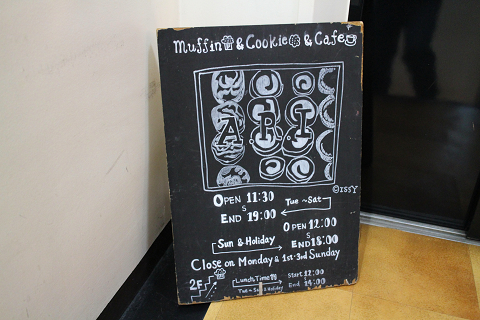 Muffin & Cookie & Cafe
ARI
©ISSY
OPEN 11:30
S
END 19:00
Tue ~ Sat
OPEN 12:00
S
END 18:00
Sun & Holiday
Close on Monday & 1st・3rd Sunday
2F
Lunch Time
Tue ~ Sun & Holiday
Start 12:00
End 14:00